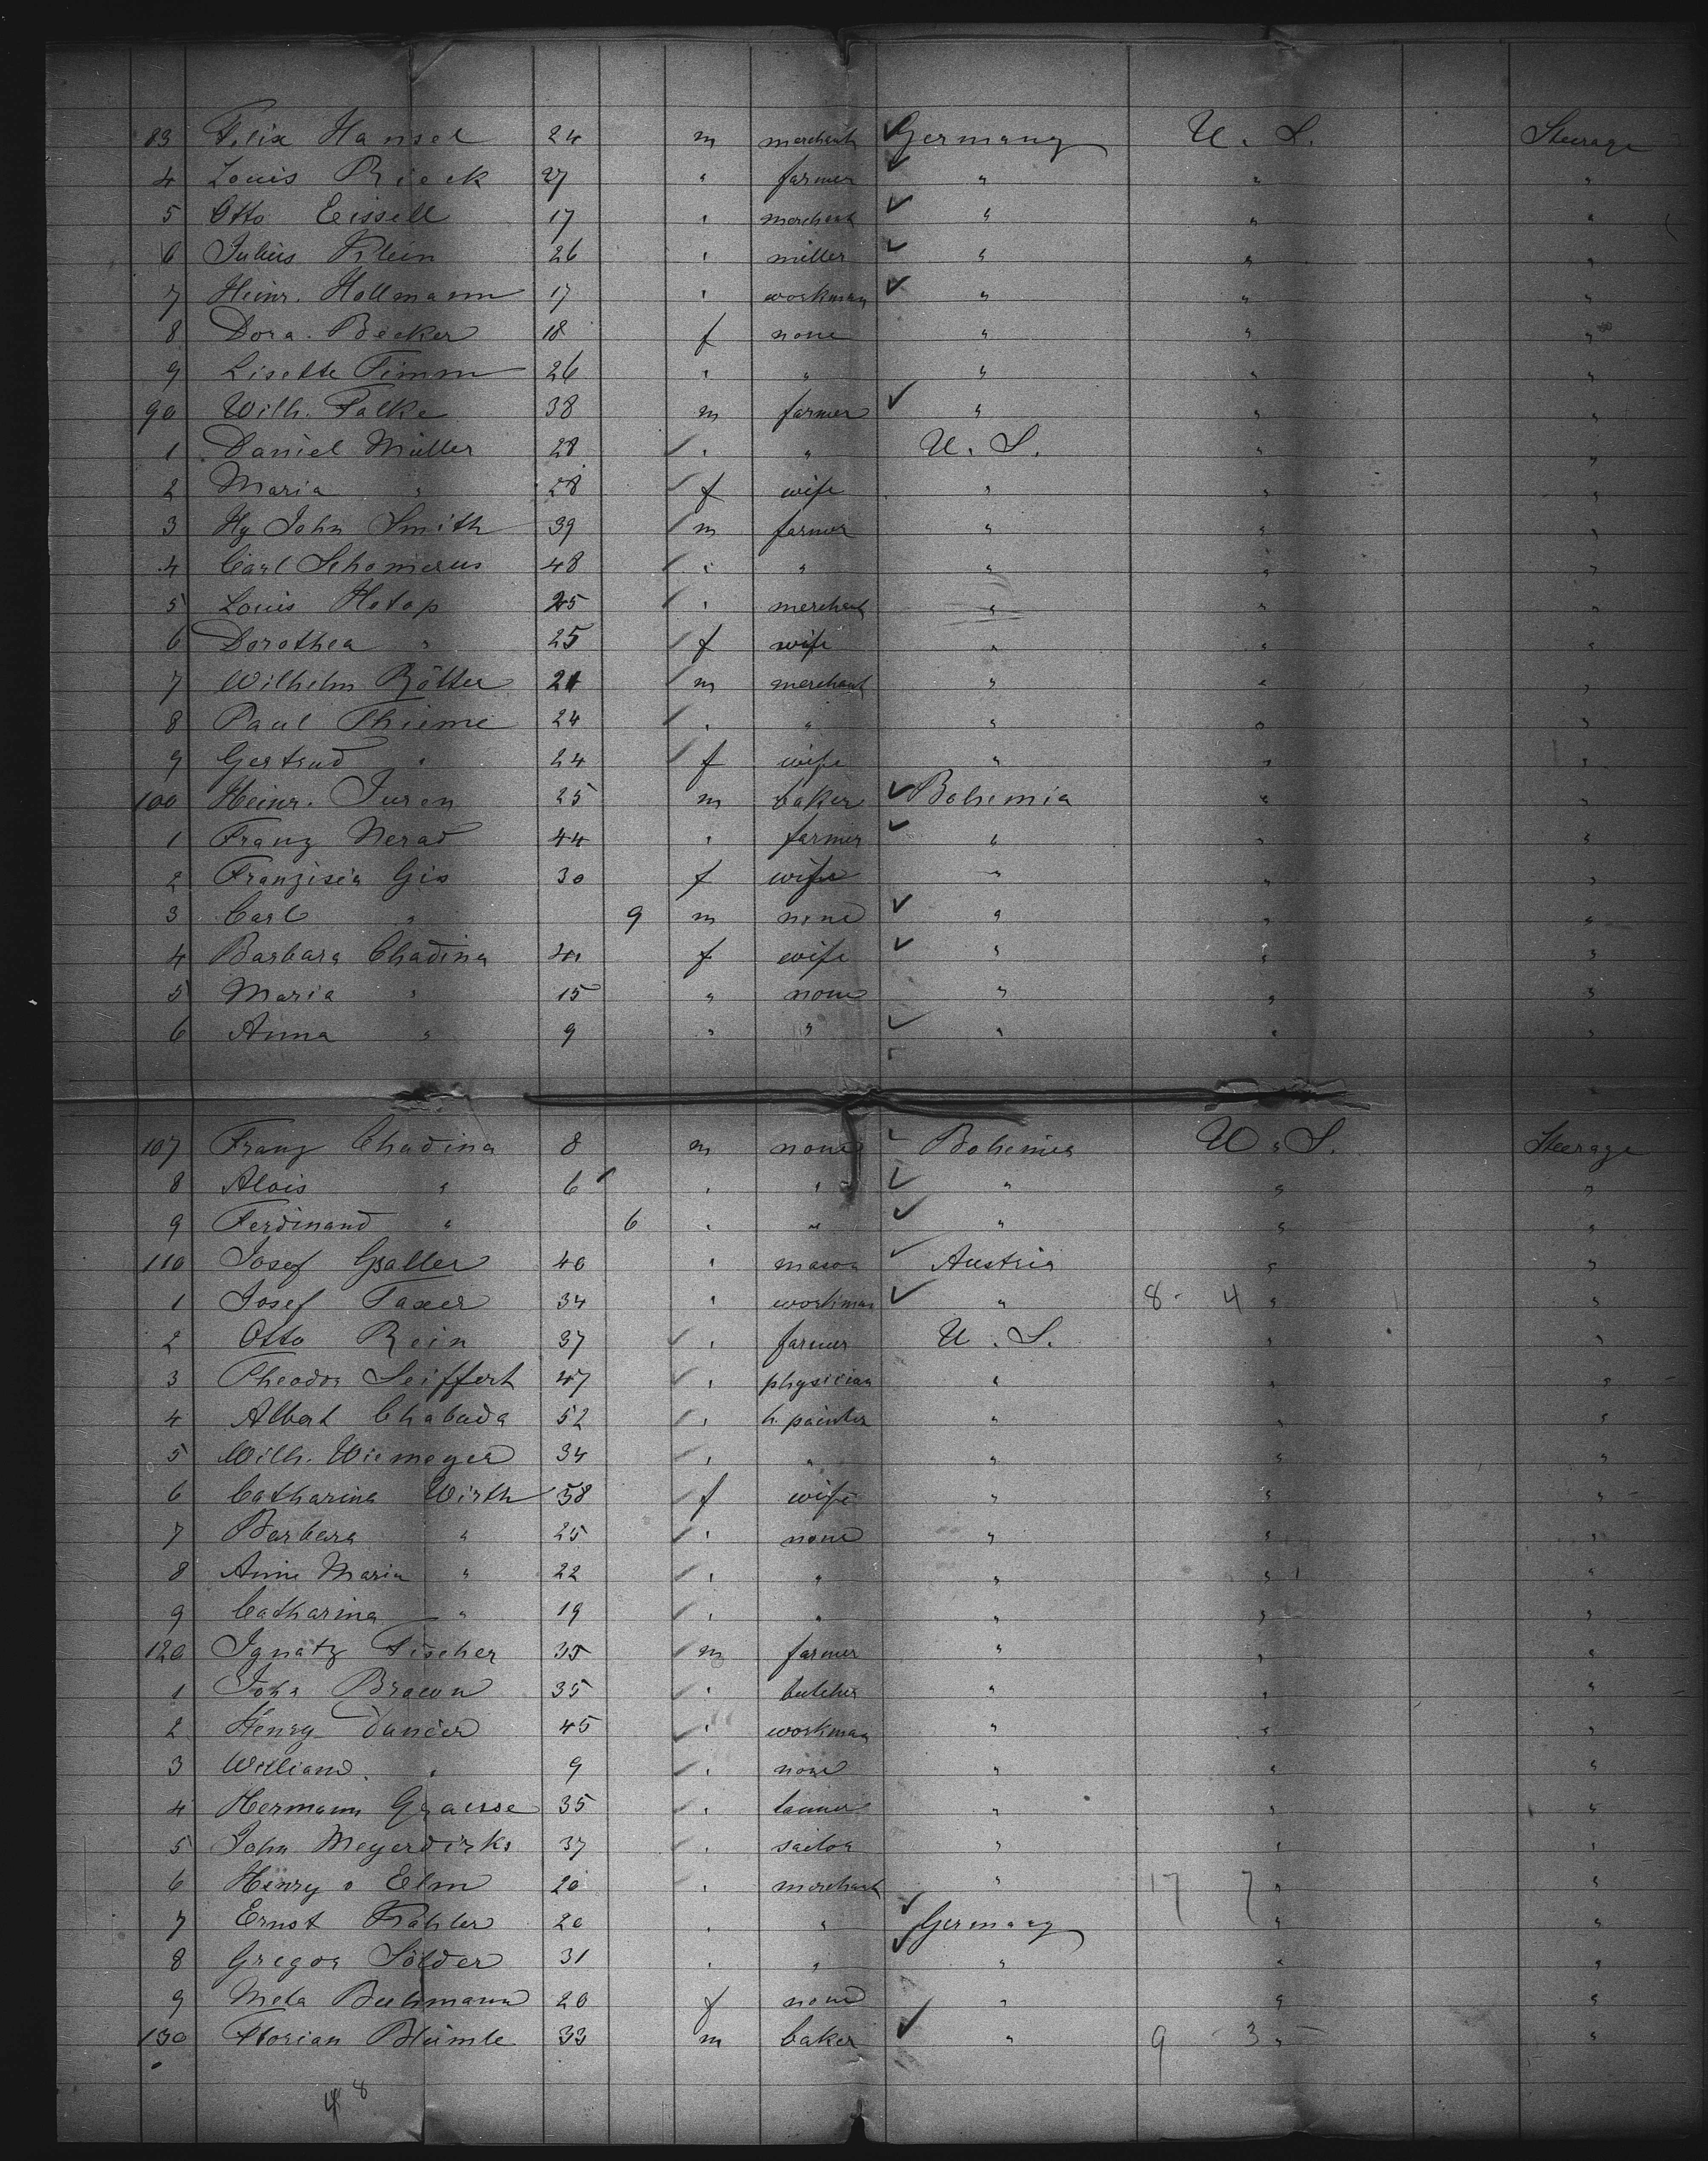 83 Felix Hansel 24 m merchant ✓ Germany U. S. Steerage
4 Louis Rieck 27 " farmer ✓ " " "
5 Otto Eissell 17 " merchant ✓ " " "
6 Julius Klein 26 " miller ✓ " " "
7 Heinr. Hollmann 17 " workman ✓ " " "
8 Dora Becker 18 f none " " "
9 Lisette Timm 26 " " " " "
90 Wilh. Falke 38 m farmer ✓ " " "
1 Daniel Müller 28 " " U. S. " "
2 Maria " 28 f wife " " "
3 Hy John Smith 39 m farmer " " "
4 Carl Schomerus 48 " " " " "
5 Louis Hotop 25 " merchant " " "
6 Dorothea " 25 f wife " " "
7 Wilhelm Rötter 21 m merchant " " "
8 Paul Thieme 24 " " " " "
9 Gertrud " 24 f wife " " "
100 Heinr. Juren 25 m baker ✓ Bohemia " "
1 Franz Nerad 44 " farmer ✓ " " "
2 Franzisca Gis 30 f wife " " "
3 Carl " 9 m none ✓ " " "
4 Barbara Chadina f wife ✓ " " "
5 Maria " 15 " none " " "
6 Anna " 9 " " ✓ " " "
107 Franz Chadina 8 m none ✓ Bohemia U. S. Steerage
8 Alois " 6 " " ✓ " " "
9 Ferdinand " 6 " " ✓ " " "
110 Josef Gsaller 40 " mason ✓ Austria " "
1 Josef Taxer 34 " workman ✓ " 8 - 4 " "
2 Otto Rein 37 " farmer U. S. " "
3 Theodor Seiffert 47 " physician " " "
4 Albert Chabada 52 " h. painter " " "
5 Wilh. Wiemeyer 34 " " " " "
6 Catharina Wirth 58 f wife " " "
7 Barbara " 25 " none " " "
8 Anna Maria " 22 " " " " "
9 Catharina " 19 " " " " "
120 Ignatz Fischer 35 m farmer " " "
1 John Braeun 35 " butcher " " "
2 Henry Duncer 45 " workman " " "
3 William " 9 " none " " "
4 Hermann Graesse 35 " tanner " " "
5 John Meyerdirks 37 " sailor " " "
6 Henry v Elm 20 " merchant " 17 7 " "
7 Ernst Kähler 20 " " ✓ Germany " "
8 Gregor Sölder 31 " " ✓ " " "
9 Meta Buhmann 20 f none " " "
130 Florian Blümle 33 m baker ✓ " 9 - 3 " "
8